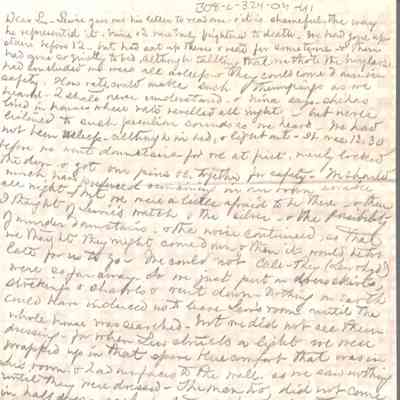 308-L-324-04-141
Dear L- Lewis gave me his letter to read one & it is shameful the way
he represented it. Nina & I was truly frightened to death. We had gone up
stairs before 12 - but had sat up there & read for sometime & then
had gone so quietly to bed, although talking that we thought the burglars
had concluded we were all asleep & they could come & in
safety. How rats could make such thumpings as we
heard I shall never understand. & Nina says she has
lived in houses where rats revelled all night but never
listened to such peculiar sounds as we heard. We had
not been asleep - although in bed, & light out - It was 12.30
before we went downstairs - for we at first, merely locked
the door & got our pins &c. together for safety.
much have preferred remaining in our own
all night, but we were a little afraid to be there - & then
I thought of Lewis's watch & the silver - & the possibility
of murder downstairs, & the noise continued, so that
we thought they might come & then it would be too
late for us to go. We could not call - they
were so far away so we just put on
stockings & shawls & went down. Nothing on earth
could have induced us to leave Lewis's room until the
whole house was searched - but we did not see them
dressing - for when Lew struck a light we were
wrapped up in that spare blue comfort that was in
his room & had our faces to the wall so we saw nothing
until they were dressed - The men too, did not come
in half